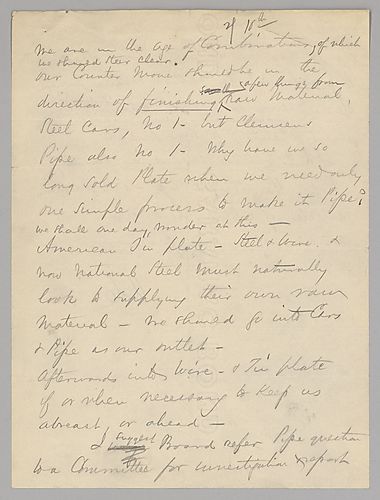 10th
We are in the Age of Combinations, of which
we should steer clear.
Our Counter Move should be in the
a few things from
direction of finishing Raw Material,
Steel Cars, No 1 - but Clemens
Pipe also No 1 - Why have we so
long sold Plate when we need only
one simple process to make it Pipe?
we shall one day, wonder at this —
American Tin plate - Steel & Wire. &
now National Steel must naturally
look to supplying their own raw
Material — We should go into Cars
& Pipe as our outlet -
Afterwards into Wire - & Tin plate
if or when necessary to keep us
abreast, or ahead —
I suggest Board refer Pipe question
to a Committee for investigation & report